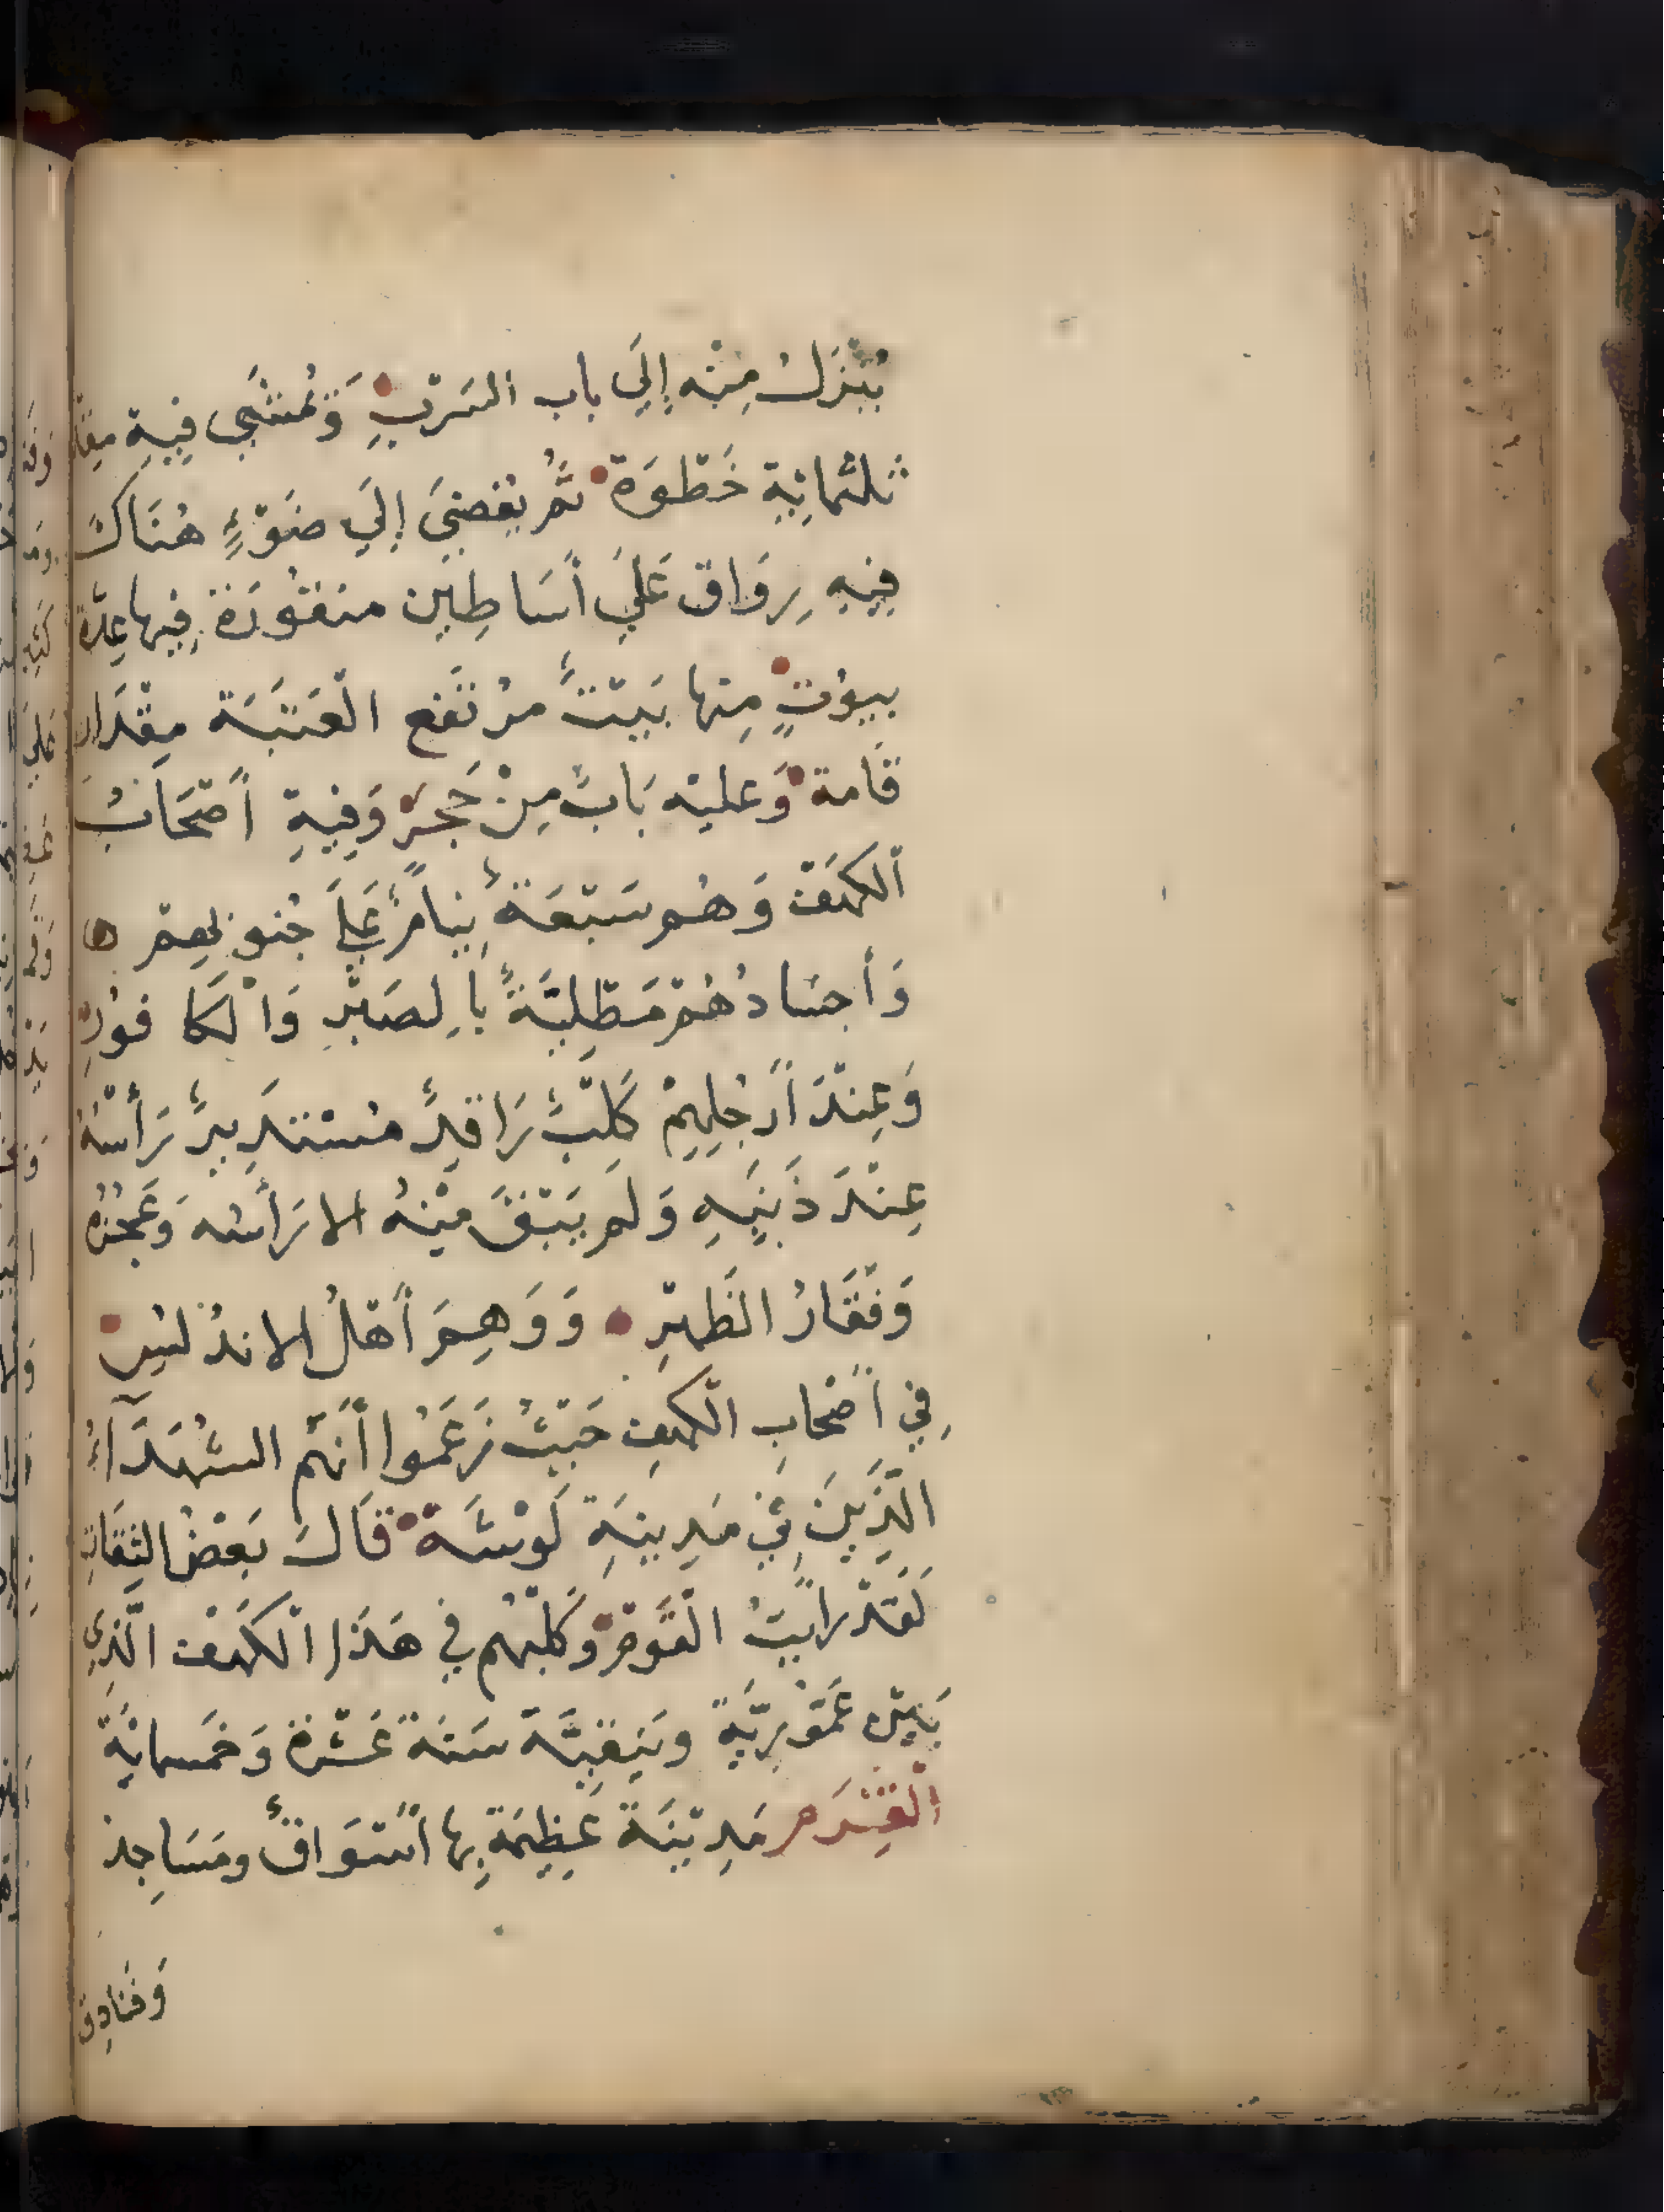 يُنْزَلُ مِنْه إِلَي باب السَرْبِ وَيُمْشَي فِيهِ مِقْدَ
ثلثمائِة خَطْوَة ثُم يُفضِي إِلَي ضَوْءٍ هُنَاكَ
فِيهِ رِوَاق عَلَي أَسَاطِين منقُورَة فِيها عِدّة
بيوُتٍ مِنها بَيْتٌ مرْتَفع الْعَتَبَة مِقْدَار
قَامة وَعليْه بَابٌ مِنْ حَجرٍ وَفِيهِ أَصْحَابُ
الكَهَفْ وَهُم سَبْعَةٌ نِيامٌ عَلَي جُنوبِهِمْ ه
وَأَجسَادُهُمْ مَطْلِيَّةٌ بِالصَبْرِ وَالْكَافُورِ
وَعِنْدَ أَرْجُلِهِمْ كَلْبٌ رَاقِدٌ مُسْتَدِيرٌ رَأْسُهُ
عِنْدَ ذَنَبِهِ وَلَم يَبْقَ مِنْهُ الا رَأْسُه وَعَجُزُهُ
وَفَقَارُ الظَهْرِ وَوَهِمَ أَهْلُ الاندُلسِ
فِي أَصْحَابِ الْكهفِ حَيْثُ زَعَمُوا أَنَهَّم الشُهَدَآءُ
الَّذِينَ فِي مَدِينَةِ لَوْشَة قَالَ بَعْضُ الثِقَاتِ
لَقَدْ رَايْتُ الْقَوْمَ وَكَلْبَهُم فِي هَذَا الْكَهَفْ الَّذِي
بَيْنَ عَمُّورِيَّةِ وَنِيقِيَّة سَنَة عَشْرَة وَخَمسمائَةِ
الْقِشَرَم مَدِيْنَة عَظِيْمَة بِها أَسْوَاقٌ ومَسَاجِد
وَفنَادِق